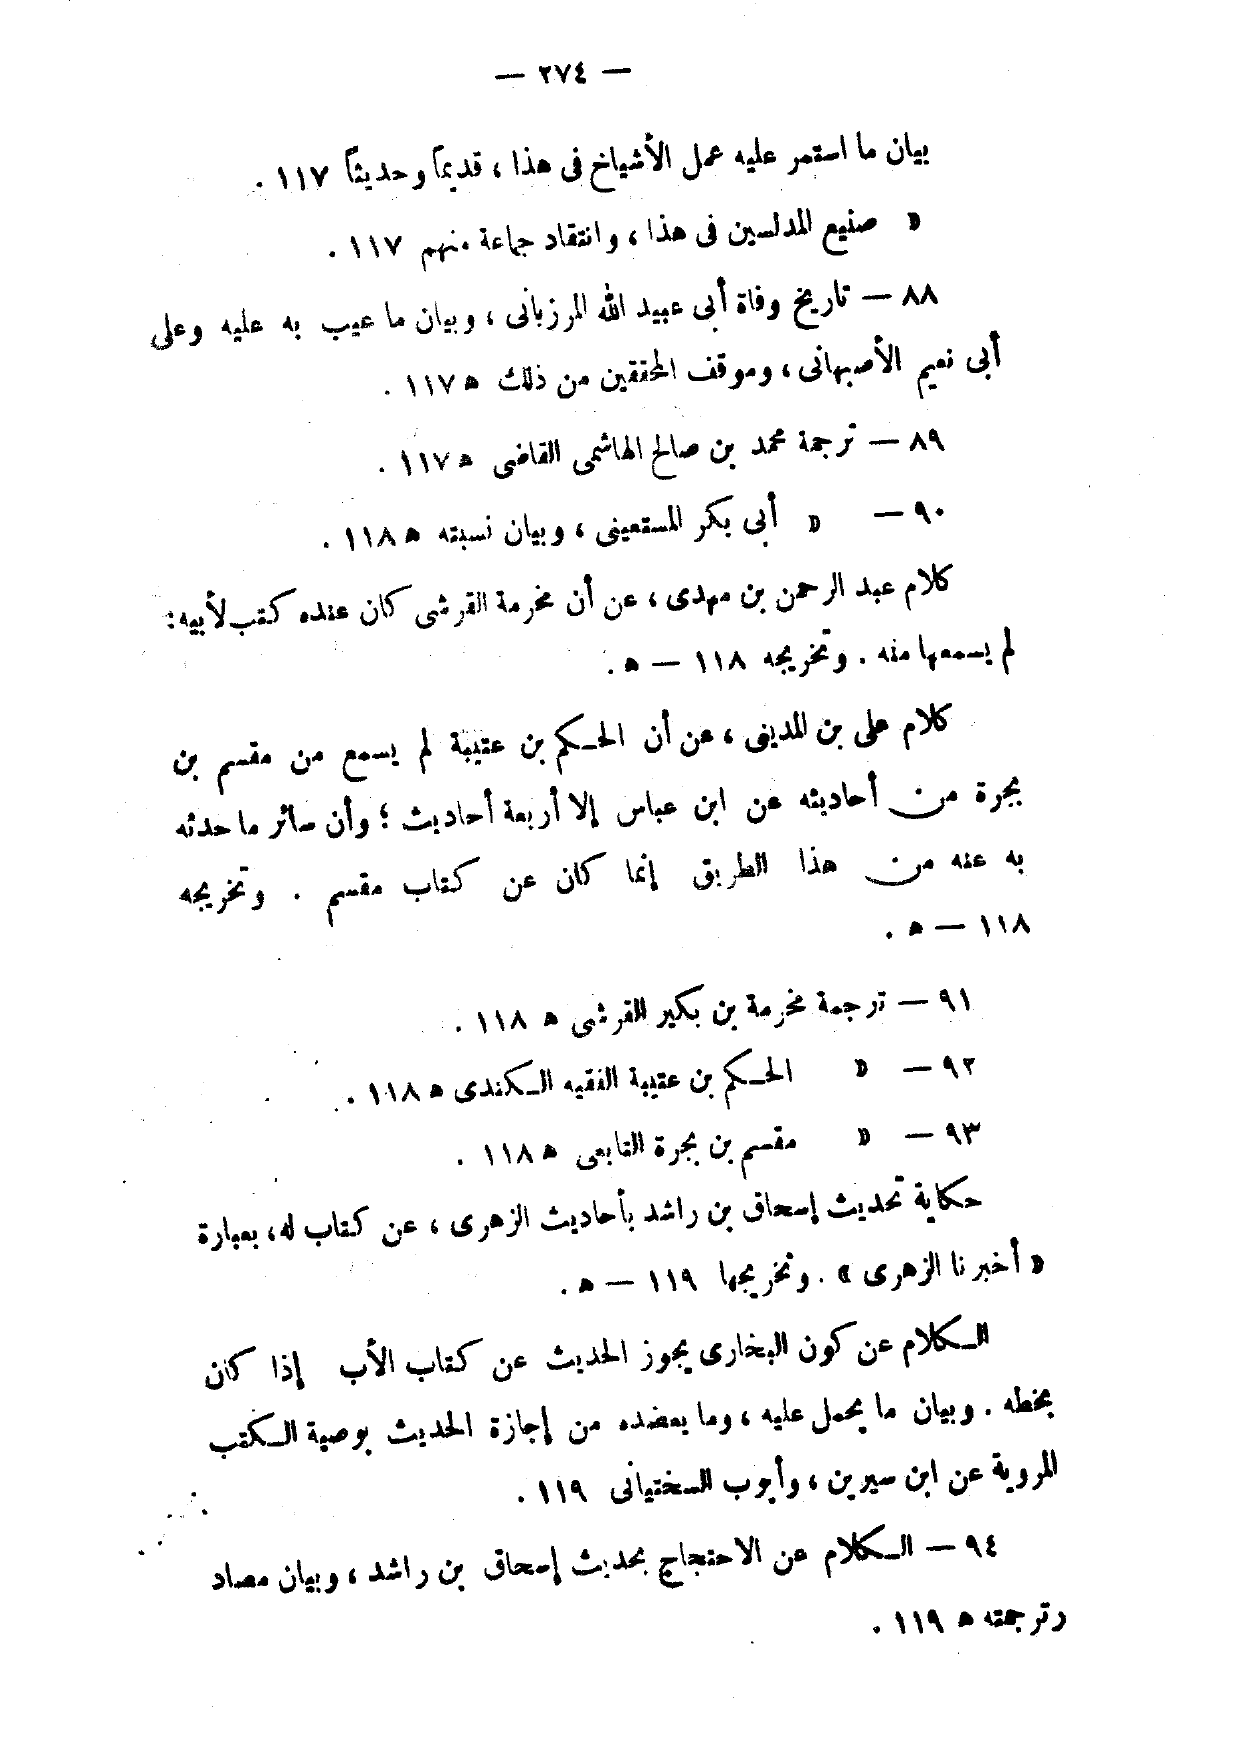 — ٢٧٤ —
بيان ما استمر عليه عمل الأشياخ فى هذا ، قديماً وحديثاً ١١٧ .
« صنيع المدلسين فى هذا ، وانتقاد جماعة منهم ١١٧ .
٨٨ — تاريخ وفاة أبى عبيد الله المرزبانى ، وبيان ما عيب به عليه وعلى
أبى نعيم الأصبهانى ، وموقف المحققين من ذلك ه ١١٧ .
٨٩ — ترجمة محمد بن صالح الهاشمى القاضى ه ١١٧ .
٩٠ — « أبى بكر المستعينى ، وبيان نسبته ه ١١٨ .
كلام عبد الرحمن بن مهدى ، عن أن مخرمة القرشى كان عنده كتب لأبيه :
لم يسمعها منه . وتخريجه ١١٨ — ه .
كلام على بن المدينى ، عن أن الحكم بن عتيبة لم يسمع من مقسم بن
بجرة من أحاديثه عن ابن عباس إلا أربعة أحاديث ؛ وأن سائر ما حدثه
به عنه من هذا الطريق إنما كان عن كتاب مقسم . وتخريجه
١١٨ — ه .
٩١ — ترجمة مخرمة بن بكير القرشى ه ١١٨ .
٩٢ — « الحكم بن عتيبة الفقيه الكندى ه ١١٨ .
٩٣ — « مقسم بن بجرة التابعى ه ١١٨ .
حكاية تحديث إسحاق بن راشد بأحاديث الزهرى ، عن كتاب له ، بعبارة
« أخبرنا الزهرى » . وتخريجها ١١٩ — ه .
الكلام عن كون البخارى يجوز الحديث عن كتاب الأب إذا كان
بخطه . وبيان ما يحمل عليه ، وما يعضده من إجازة الحديث بوصية الكتب
المروية عن ابن سيرين ، وأيوب السختيانى ١١٩ .
٩٤ — الكلام عن الاحتجاج بحديث إسحاق بن راشد ، وبيان مصاد
ر ترجمته ه ١١٩ .